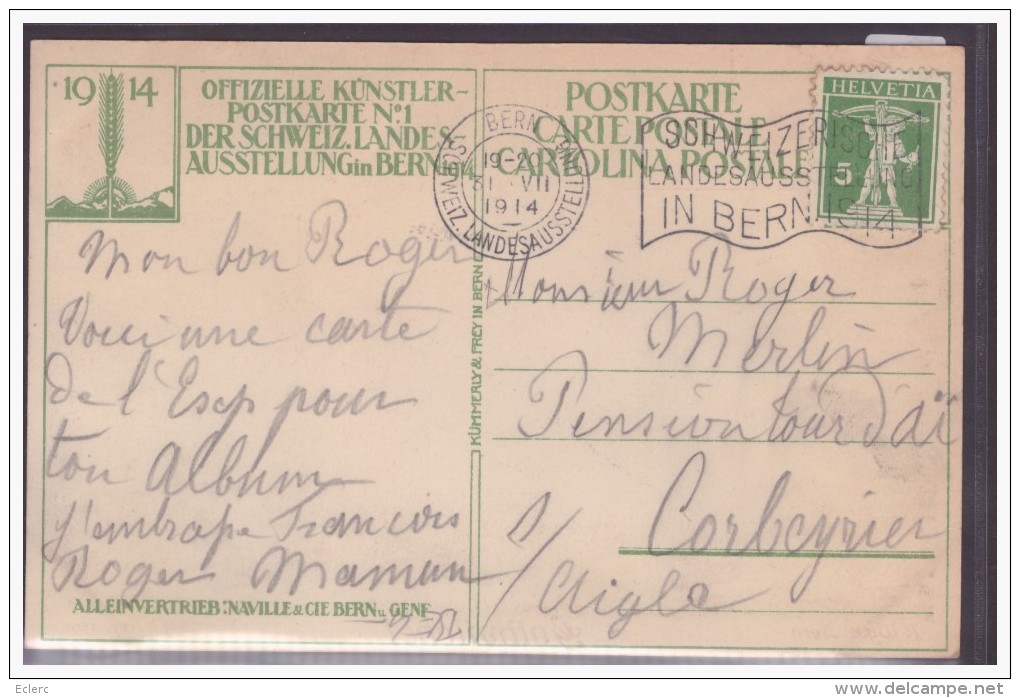 19 14
OFFIZIELLE KÜNSTLER-
POSTKARTE No. 1
DER SCHWEIZ. LANDES-
AUSSTELLUNG in BERN 1914
POSTKARTE
CARTE POSTALE
CARTOLINA POSTALE
BERN
19-20
31 VII
1914
SCHWEIZ. LANDESAUSSTELLUNG
SCHWEIZERISCHE
LANDESAUSSTELLUNG
IN BERN 1914
HELVETIA
5
Mon bon Roger
Voici une carte
de l'Exp pour
ton Album
J'embrasse François
Roger Maman
Monsieur Roger
Merlin
Pension tour d'aï
Corbeyrier
s/ Aigle
KÜMMERLY & FREY IN BERN
ALLEINVERTRIEB: NAVILLE & CIE BERN u. GENF
Eclerc
www.delcampe.net